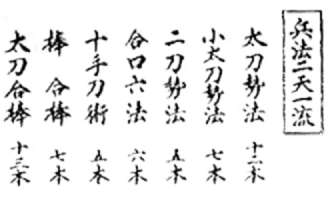 兵法二天一流
太刀勢法 十二本
小太刀勢法 七本
二刀勢法 五本
合口六法 六本
十手刀術 五本
棒 合棒 七本
太刀合棒 十三本